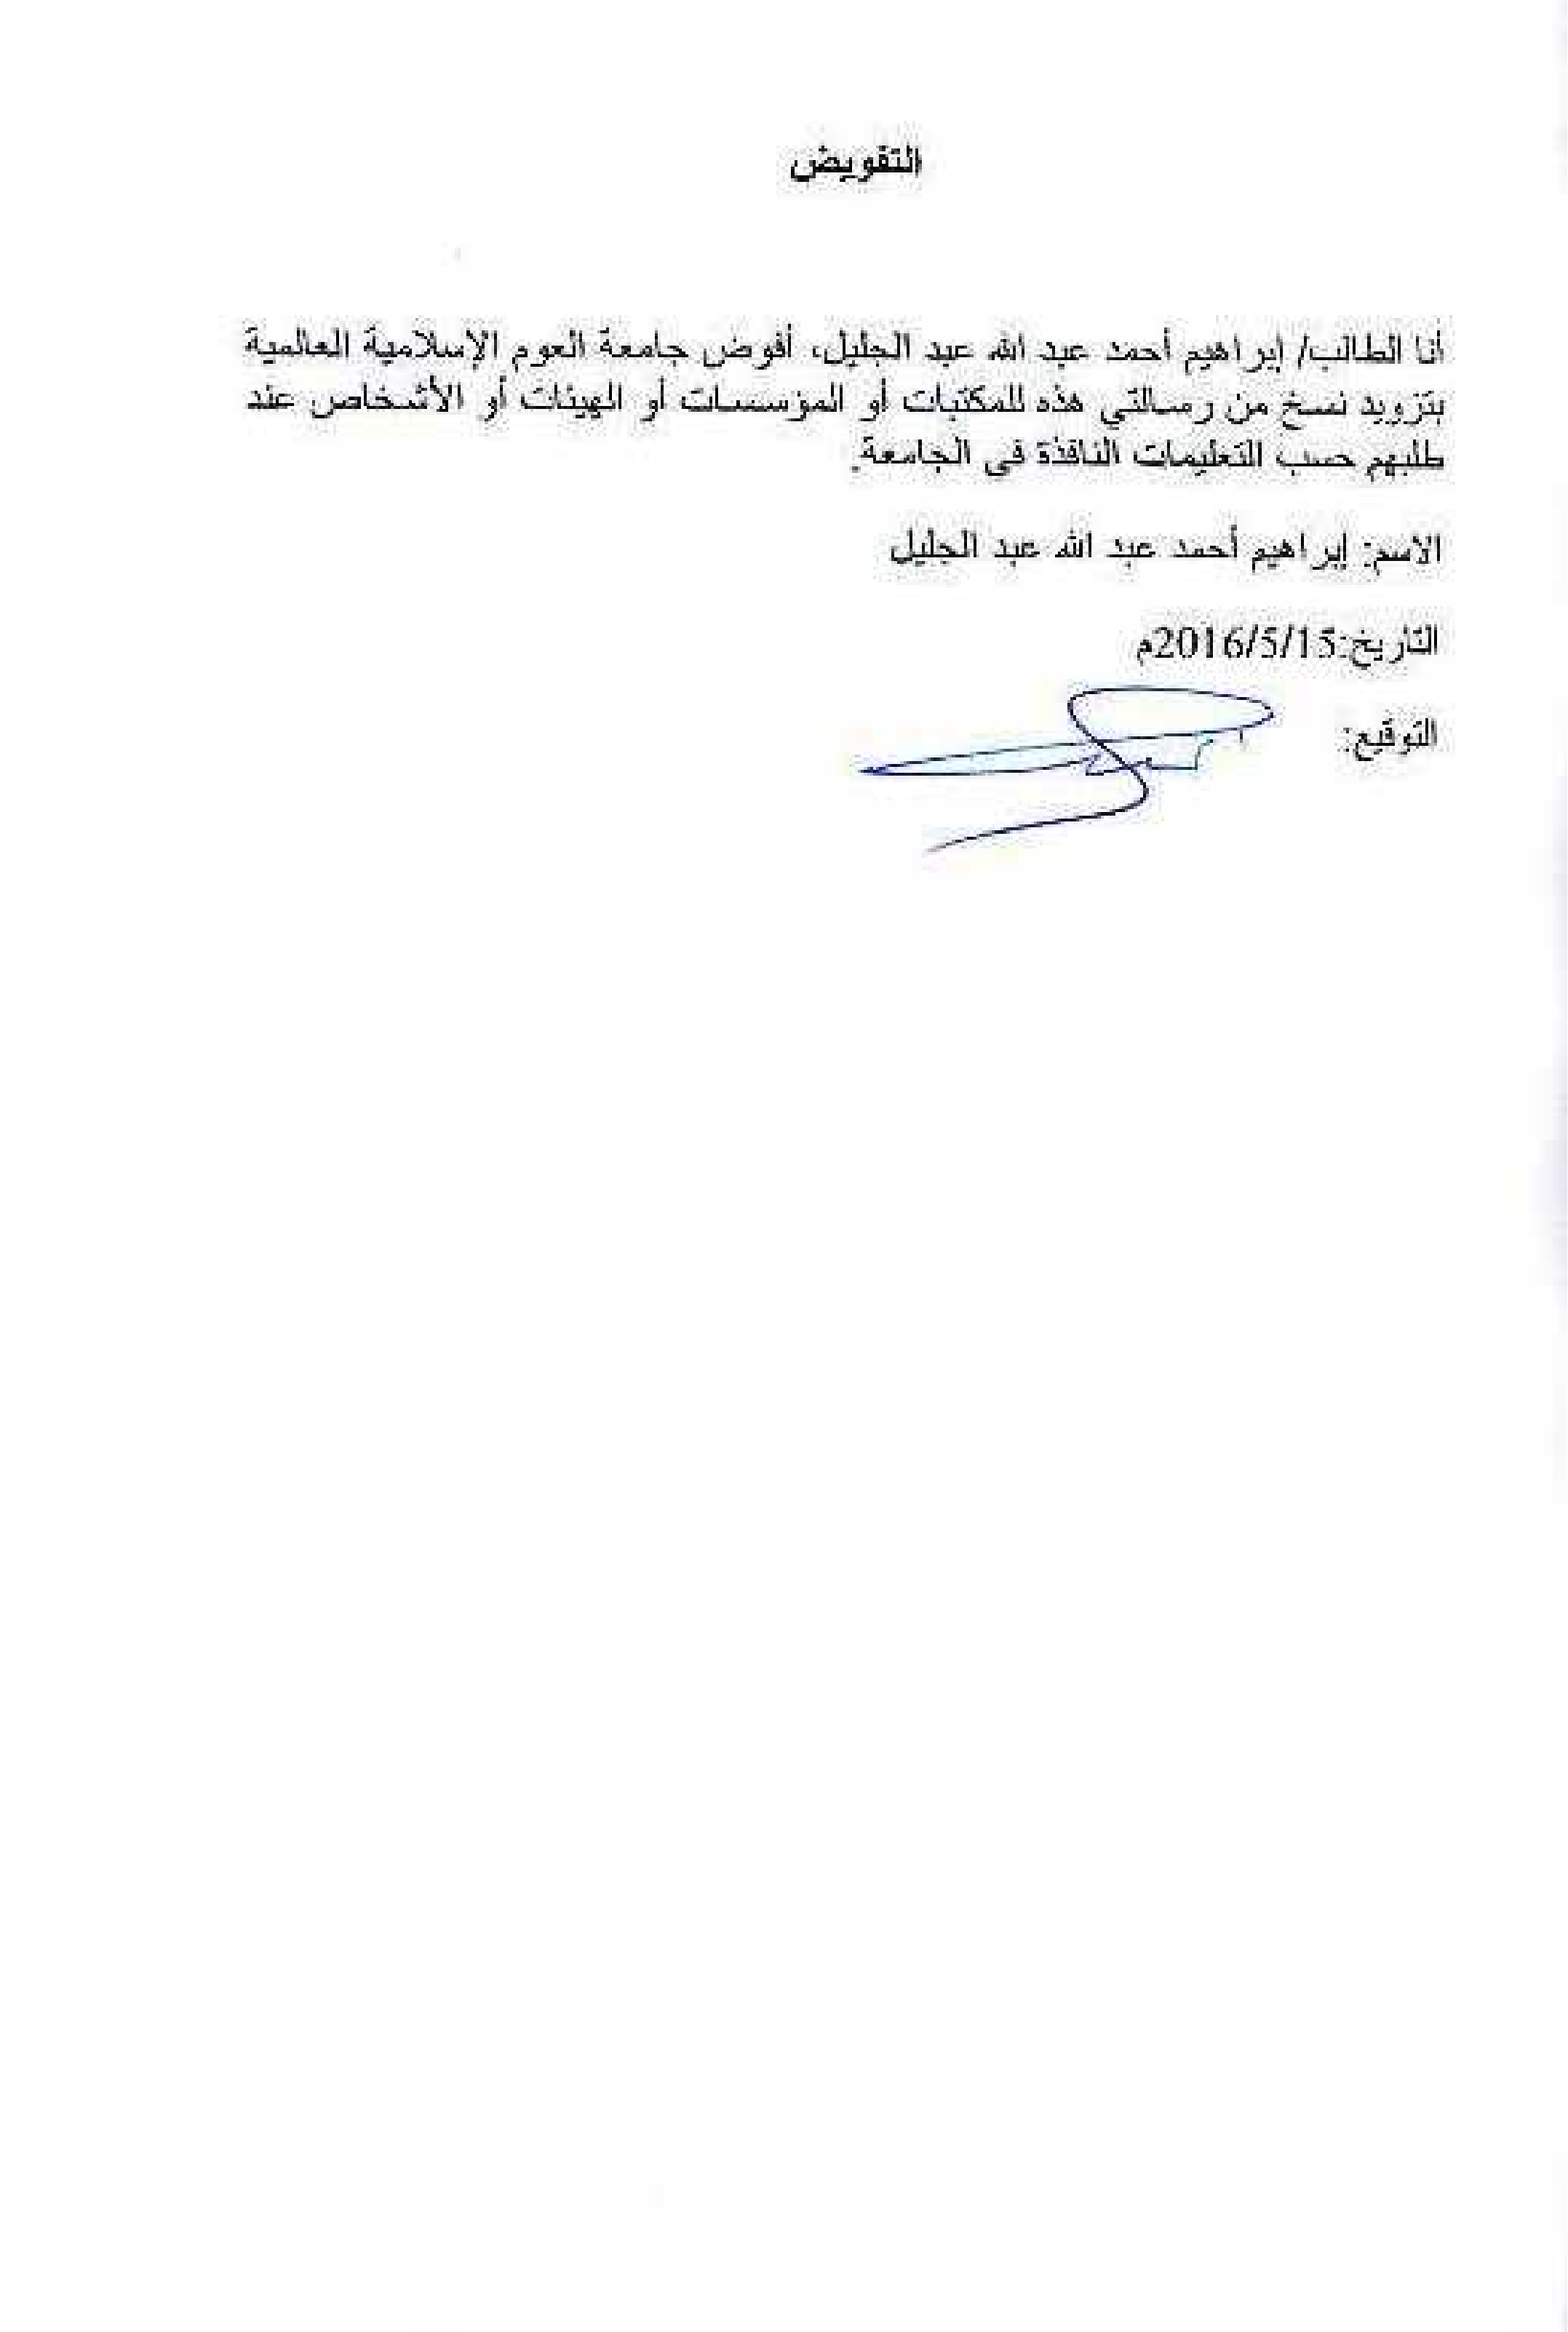 التفويض
أنا الطالب/ إبراهيم أحمد عبد الله عبد الجليل، أفوض جامعة العوم الإسلامية العالمية
بتزويد نسخ من رسالتي هذه للمكتبات أو المؤسسات أو الهيئات أو الأشخاص عند
طلبهم حسب التعليمات النافذة في الجامعة.
الاسم: إبراهيم أحمد عبد الله عبد الجليل
التاريخ:2016/5/15م
التوقيع: